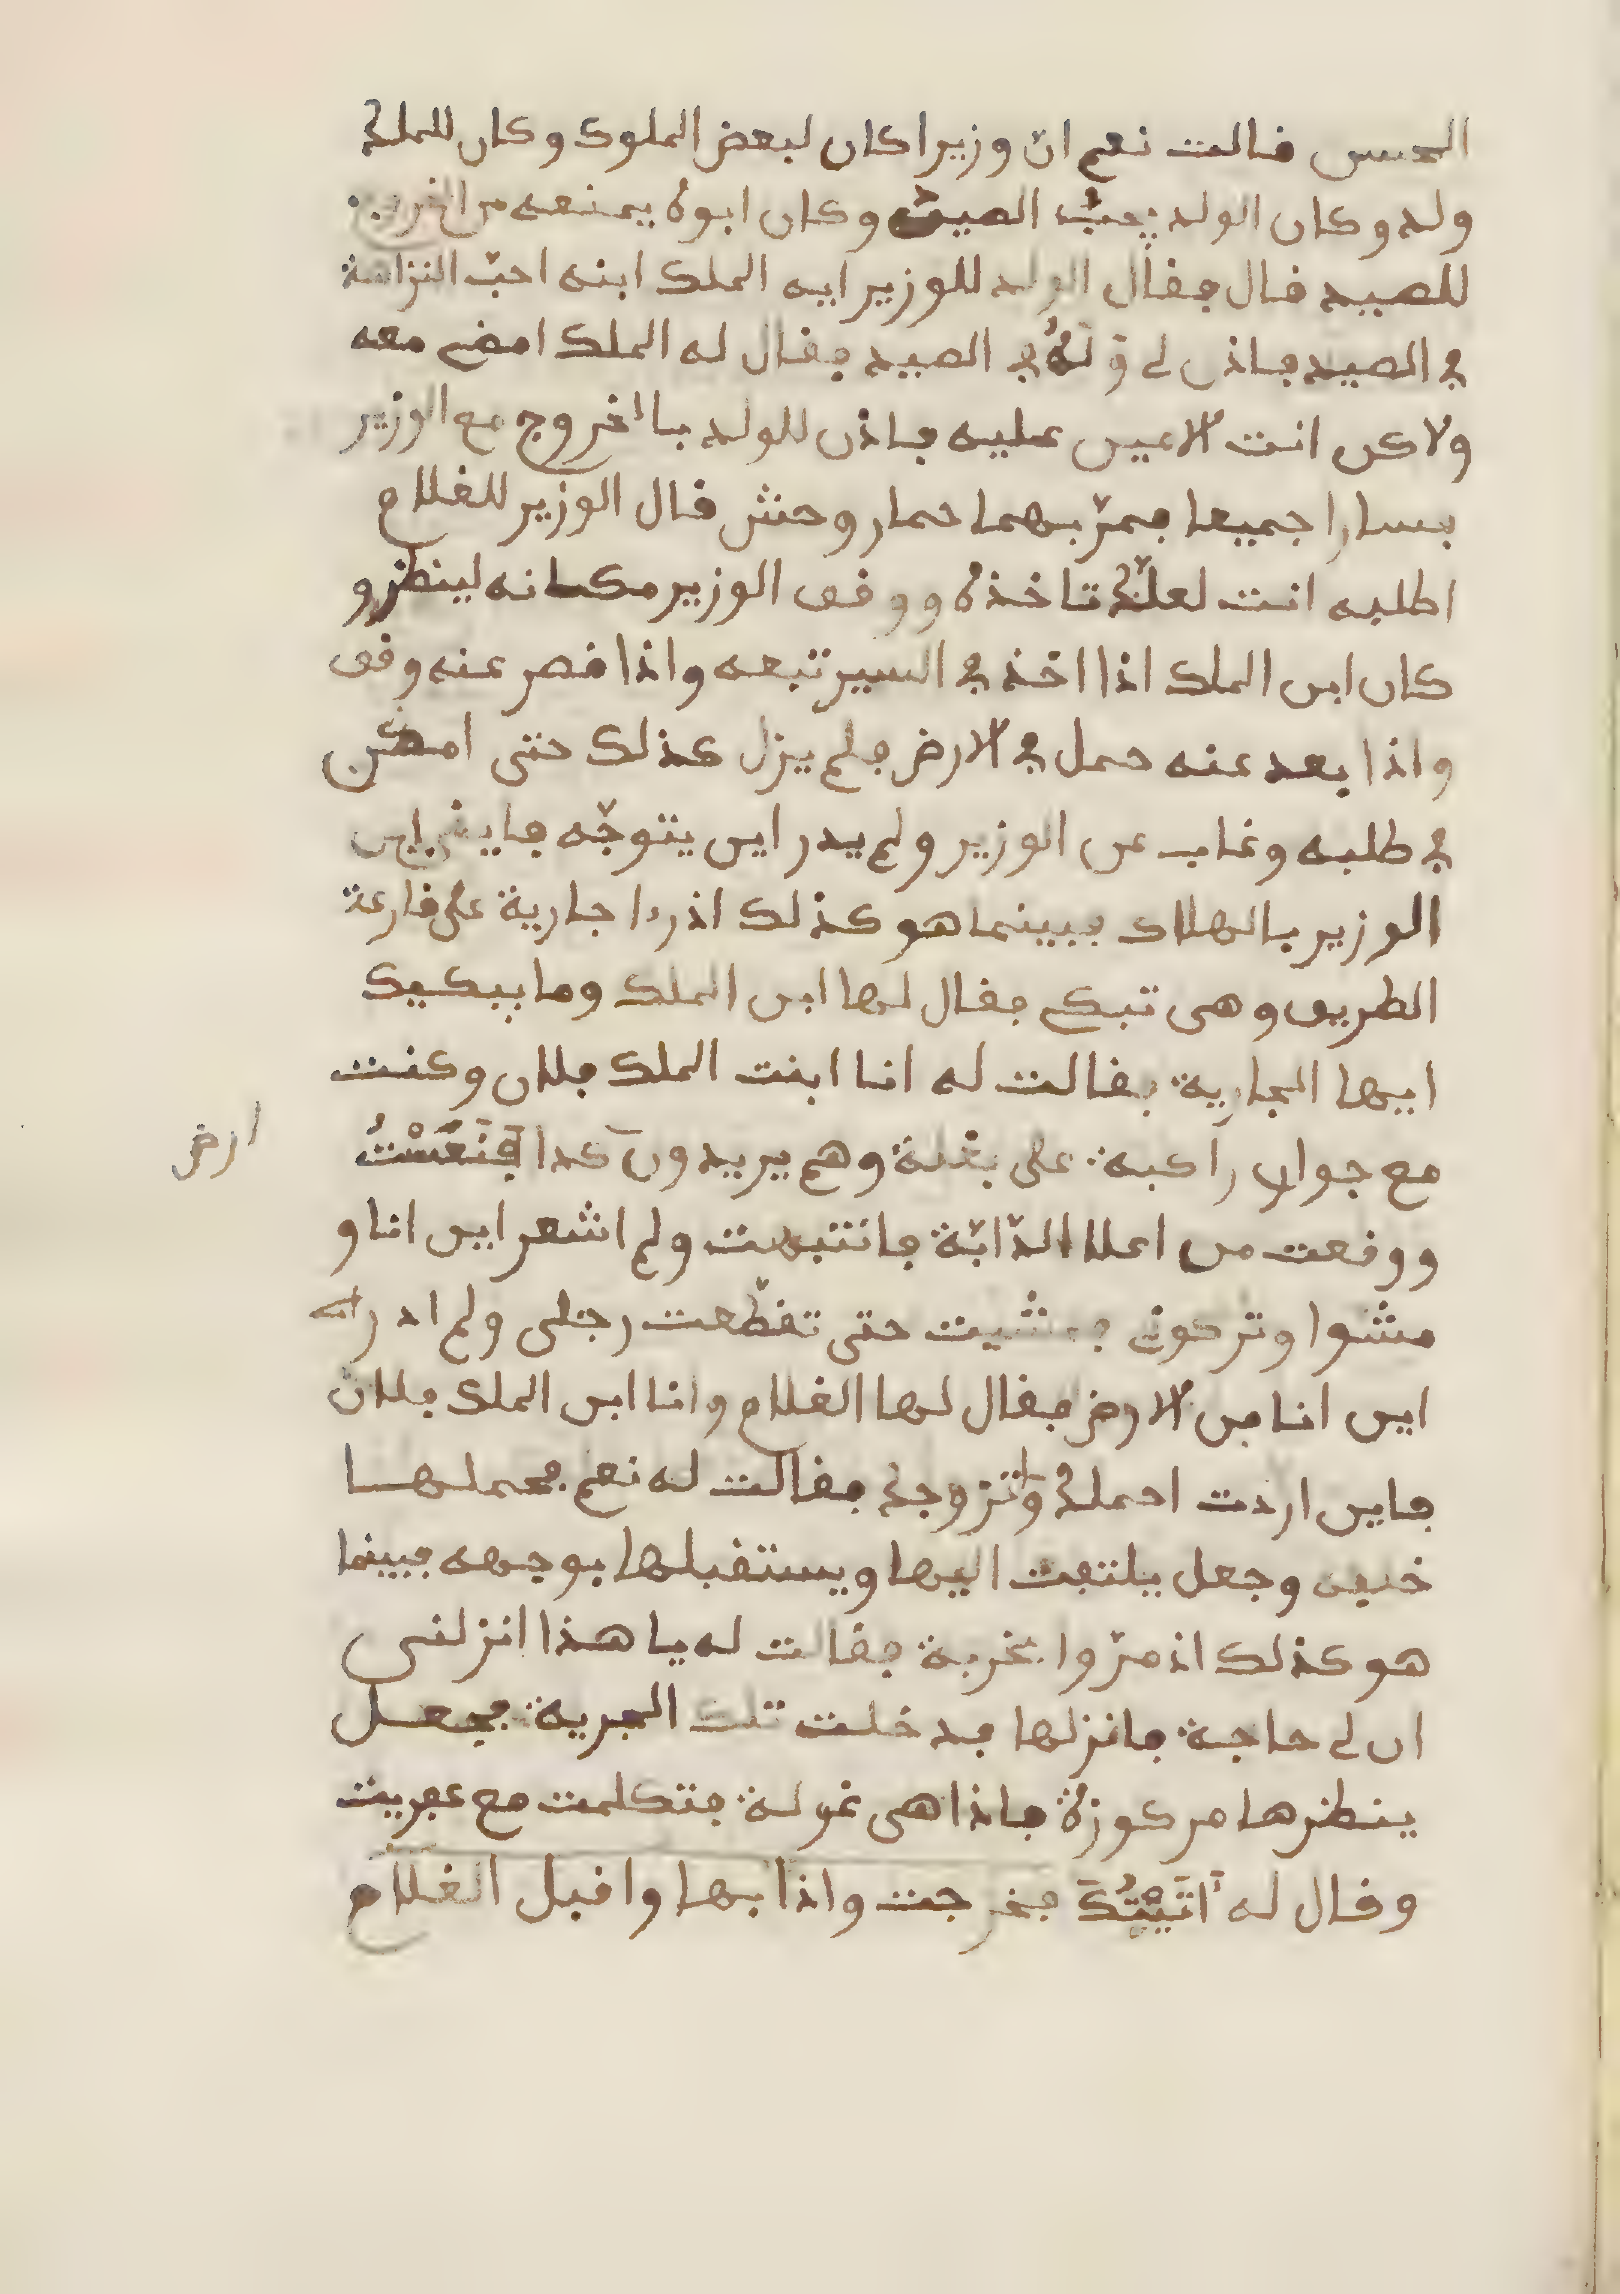 الحسن فالت نعم انّ وزيرا كان لبعض الملوك وكان للملك
ولد وكان الولد يحبّ الصيد وكان ابوه يمنعه من الخروج
للصيد فال فقال الولد للوزير ايه الملك ابنه احبّ النزاهة
في الصيد فاذن لي وَلَهُ في الصيد فقال له الملك امضى معه
ولاكن انت الامين عليه فاذن للولد بالخروج مع الوزير
فسارا جميعا فمرّ بهما حمار وحش قال الوزير للغلام
اطلبه انت لعلّك تاخذه ووقف الوزير مكانه لينظر و
كان ابن الملك اذا اخذ في السير تبعه واذا قصر عنه وقف
واذا بعد عنه حمل في الارض فلم يزل كذلك حتى امكن
في طلبه وغاب عن الوزير ولم يدر اين يتوجّه فايقن ابن
الوزير بالهلاك فبينما هو كذلك اذ رءا جارية على قارعة
الطريق وهى تبكي فقال لها ابن الملك وما يبكيك
ايها الجارية فقالت له انا ابنت الملك فلان وكنت
مع جوار راكبة على بغلة وهم يريدون كدا فَنَعَسْتُ
ارض
ووقعت من اعلا الدّابّة فانتبهت ولم اشعر اين انا و
مشوا وتركونى فمشيت حتى تقطّعت رجلى ولم ادر
اين انا من الارض فقال لها الغلام وانا ابن الملك فلان
فاين اردت احملك واتزوجك فقالت له نعم فحملها
خلفه وجعل يلتفت اليها ويستقبلها بوجهه فبينما
هو كذلك اذ مرّوا بخربة فقالت له يا هذا انزلنى
ان لي حاجة فانزلها فدخلت تلك الجرية فجعل
ينظرها مركوزة فاذا هى غولة فتكلمت مع عفريت
وقال له اَتَيْتُكَ فخرجت واذا بها واقبل الغلام